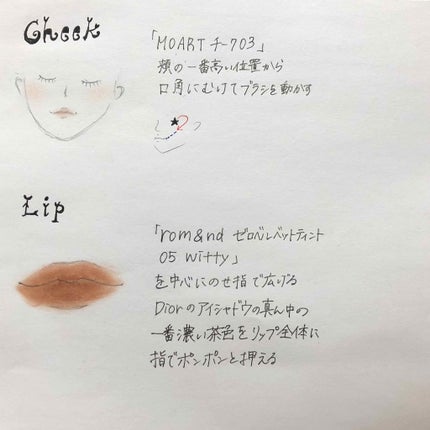 Cheek
「MOART チ-703」
頬の一番高い位置から
口角にむけてブラシを動かす
Lip
「rom&nd ゼロベルベットティント
05 witty」
を中心にのせ指で広げる
Diorのアイシャドウの真ん中の
一番濃い茶色をリップ全体に
指でポンポンと押える